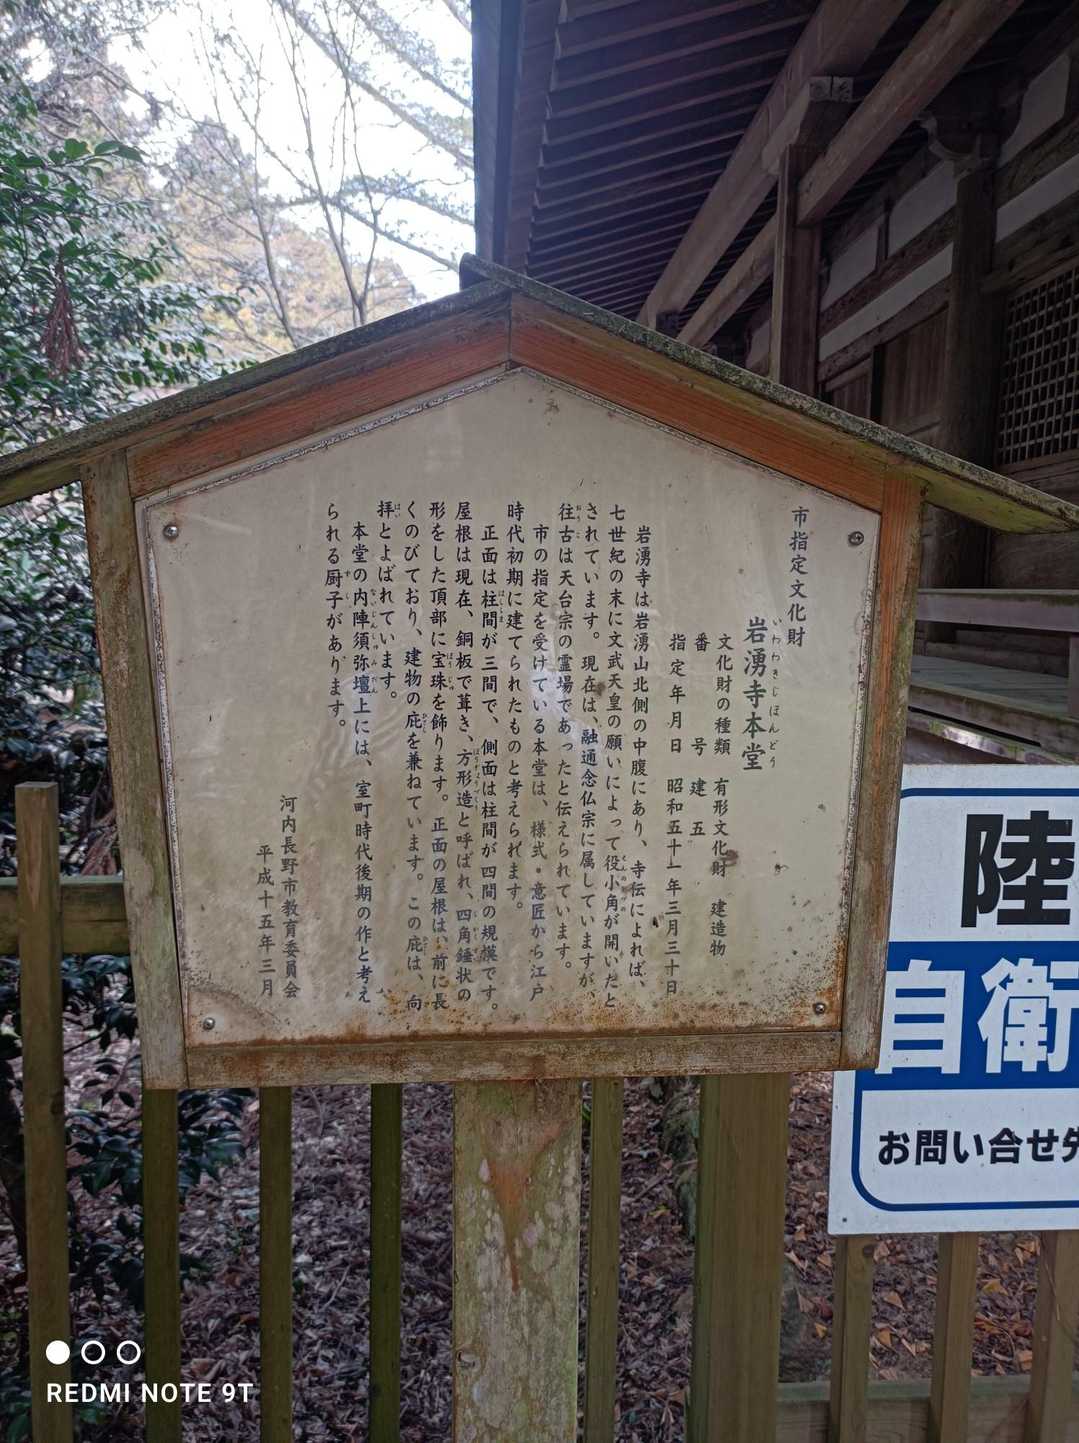 市指定文化財
いわわきじほんどう
岩湧寺本堂
文化財の種類 有形文化財 建造物
番号 建五
指定年月日 昭和五十一年三月三十日
岩湧寺は岩湧山北側の中腹にあり、寺伝によれば、
七世紀の末に文武天皇の願いによって役小角が開いたと
されています。現在は、融通念仏宗に属していますが、
往古は天台宗の霊場であったと伝えられています。
市の指定を受けている本堂は、様式・意匠から江戸
時代初期に建てられたものと考えられます。
正面は柱間が三間で、側面は柱間が四間の規模です。
屋根は現在、銅板で葺き、方形造と呼ばれ、四角錘状の
形をした頂部に宝珠を飾ります。正面の屋根は、前に長
くのびており、建物の庇を兼ねています。この庇は、向
拝とよばれています。
本堂の内陣須弥壇上には、室町時代後期の作と考え
られる厨子があります。
河内長野市教育委員会
平成十五年三月
陸
自衛
お問い合せ
REDMI NOTE 9T